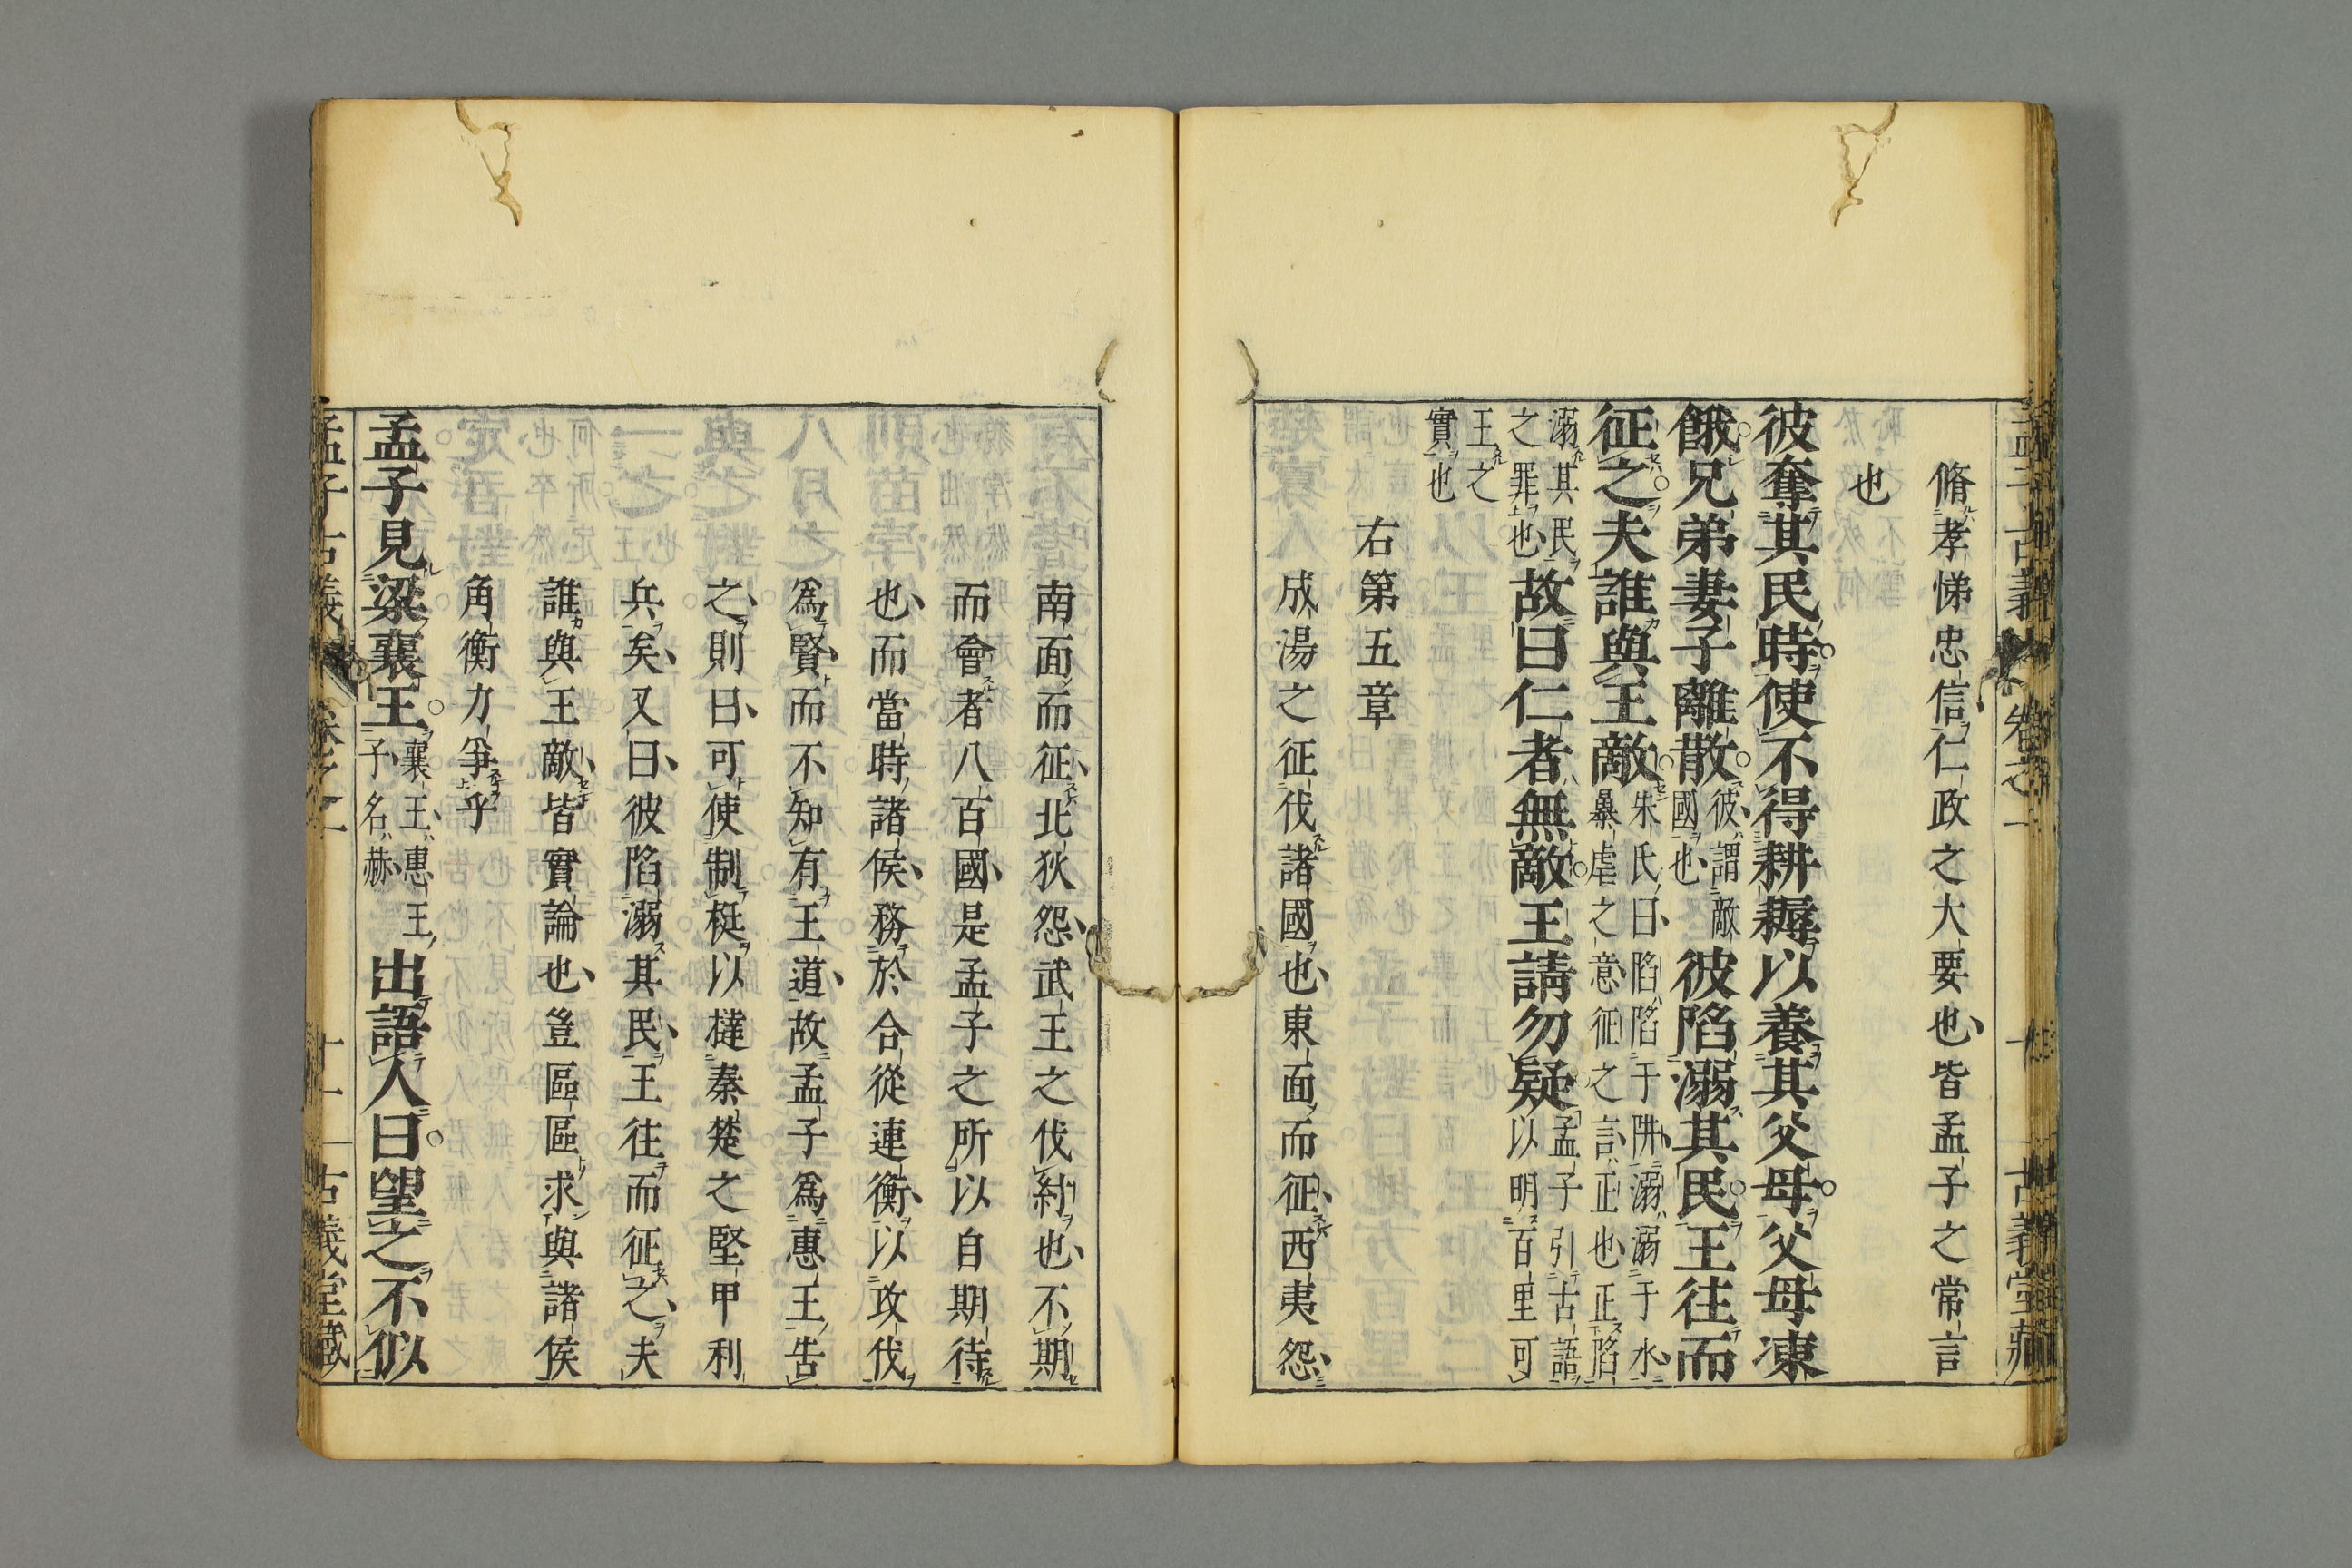 脩孝悌忠信仁政之大要也皆孟子之常言
也
彼奪其民時使不得耕耨以養其父母父母凍
餓兄弟妻子離散彼謂敵國也彼陷溺其民王往而
征之夫誰與王敵朱氏曰陷陷于阱溺溺于水暴虐之意征之言正也正陷
溺其民之罪也故曰仁者無敵王請勿疑孟子引古語以明百里可
王之實也
右第五章
成湯之征伐諸國也東面而征西夷怨
南面而征北狄怨武王之伐紂也不期
而會者八百國是孟子之所以自期待
也而當時諸侯務於合從連衡以攻伐
為賢而不知有王道故孟子為惠王告
之則曰可使制梃以撻秦楚之堅甲利
兵矣又曰彼陷溺其民王往而征之夫
誰與王敵皆實論也豈區區求與諸侯
角衡力爭乎
孟子見梁襄王襄王惠王子名赫出語人曰望之不似
孟子古義 卷之一 十一 古義堂藏